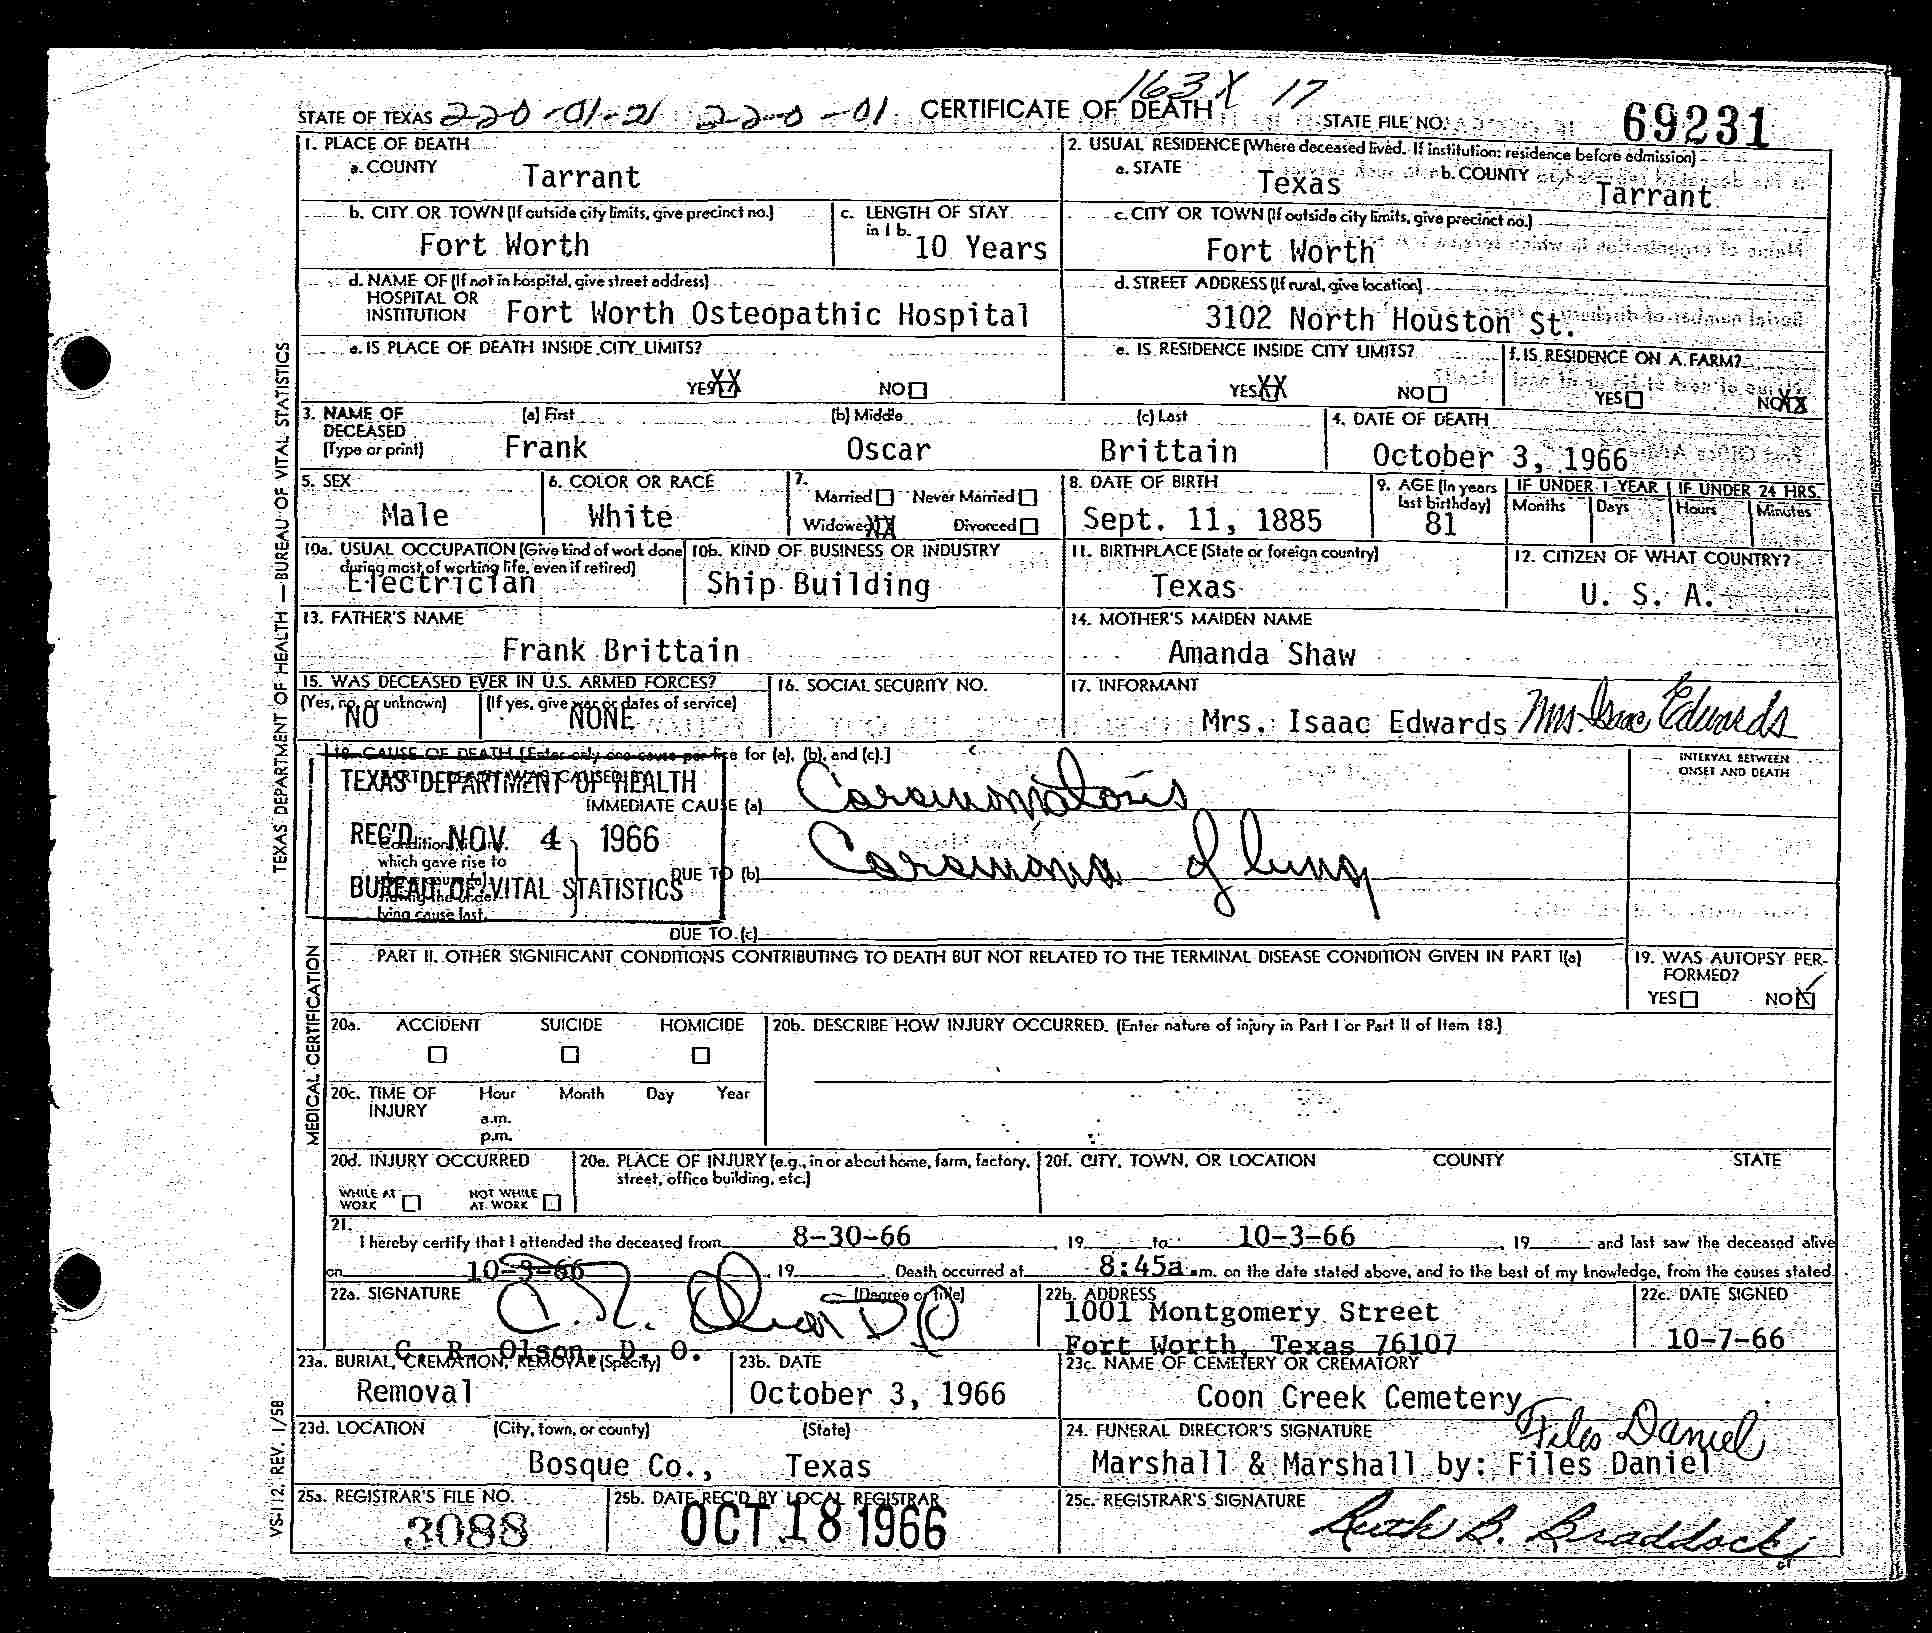 163X 17
STATE OF TEXAS 220-01-21 220-01 CERTIFICATE OF DEATH STATE FILE NO. 69231
1. PLACE OF DEATH
a. COUNTY Tarrant
2. USUAL RESIDENCE (Where deceased lived. If institution: residence before admission)
a. STATE Texas b. COUNTY Tarrant
b. CITY OR TOWN (If outside city limits, give precinct no.) Fort Worth
c. LENGTH OF STAY in 1 b. 10 Years
c. CITY OR TOWN (If outside city limits, give precinct no.) Fort Worth
d. NAME OF (If not in hospital, give street address) HOSPITAL OR INSTITUTION Fort Worth Osteopathic Hospital
d. STREET ADDRESS (If rural, give location) 3102 North Houston St.
e. IS PLACE OF DEATH INSIDE CITY LIMITS? YES XX NO
e. IS RESIDENCE INSIDE CITY LIMITS? YES XX NO
f. IS RESIDENCE ON A FARM? YES NO XX
3. NAME OF DECEASED (Type or print) (a) First Frank (b) Middle Oscar (c) Last Brittain
4. DATE OF DEATH October 3, 1966
5. SEX Male
6. COLOR OR RACE White
7. Married Never Married Widowed XX Divorced
8. DATE OF BIRTH Sept. 11, 1885
9. AGE (In years last birthday) 81
IF UNDER 1 YEAR Months Days
IF UNDER 24 HRS. Hours Minutes
10a. USUAL OCCUPATION (Give kind of work done during most of working life, even if retired) Electrician
10b. KIND OF BUSINESS OR INDUSTRY Ship Building
11. BIRTHPLACE (State or foreign country) Texas
12. CITIZEN OF WHAT COUNTRY? U. S. A.
13. FATHER'S NAME Frank Brittain
14. MOTHER'S MAIDEN NAME Amanda Shaw
15. WAS DECEASED EVER IN U.S. ARMED FORCES?
(Yes, no, or unknown) NO (If yes, give war or dates of service) NONE
16. SOCIAL SECURITY NO.
17. INFORMANT Mrs. Isaac Edwards Mrs. Isaac Edwards
18. CAUSE OF DEATH [Enter only one cause per line for (a), (b), and (c).]
INTERVAL BETWEEN ONSET AND DEATH
TEXAS DEPARTMENT OF HEALTH
REC'D NOV. 4 1966
BUREAU OF VITAL STATISTICS
IMMEDIATE CAUSE (a) Carcinomatosis
which gave rise to
DUE TO (b) Carcinoma of lung
lying cause last.
DUE TO (c)
PART II. OTHER SIGNIFICANT CONDITIONS CONTRIBUTING TO DEATH BUT NOT RELATED TO THE TERMINAL DISEASE CONDITION GIVEN IN PART I(a)
19. WAS AUTOPSY PERFORMED? YES NO
20a. ACCIDENT SUICIDE HOMICIDE
20b. DESCRIBE HOW INJURY OCCURRED. (Enter nature of injury in Part I or Part II of Item 18.)
20c. TIME OF INJURY Hour Month Day Year
a.m.
p.m.
20d. INJURY OCCURRED WHILE AT WORK NOT WHILE AT WORK
20e. PLACE OF INJURY (e.g., in or about home, farm, factory, street, office building, etc.)
20f. CITY, TOWN, OR LOCATION COUNTY STATE
21. I hereby certify that I attended the deceased from 8-30-66 19 to 10-3-66, 19 and last saw the deceased alive
on 10-3-66, 19 Death occurred at 8:45a m. on the date stated above, and to the best of my knowledge, from the causes stated.
22a. SIGNATURE C. R. Olson DO (Degree or title)
C. R. Olson, D. O.
22b. ADDRESS 1001 Montgomery Street
Fort Worth, Texas 76107
22c. DATE SIGNED 10-7-66
23a. BURIAL, CREMATION, REMOVAL (Specify) Removal
23b. DATE October 3, 1966
23c. NAME OF CEMETERY OR CREMATORY Coon Creek Cemetery
23d. LOCATION (City, town, or county) (State) Bosque Co., Texas
24. FUNERAL DIRECTOR'S SIGNATURE Files Daniel
Marshall & Marshall by: Files Daniel
25a. REGISTRAR'S FILE NO. 3088
25b. DATE REC'D BY LOCAL REGISTRAR OCT 18 1966
25c. REGISTRAR'S SIGNATURE Ruth B. Braddock
TEXAS DEPARTMENT OF HEALTH — BUREAU OF VITAL STATISTICS
MEDICAL CERTIFICATION
VS-112, REV. 1/58